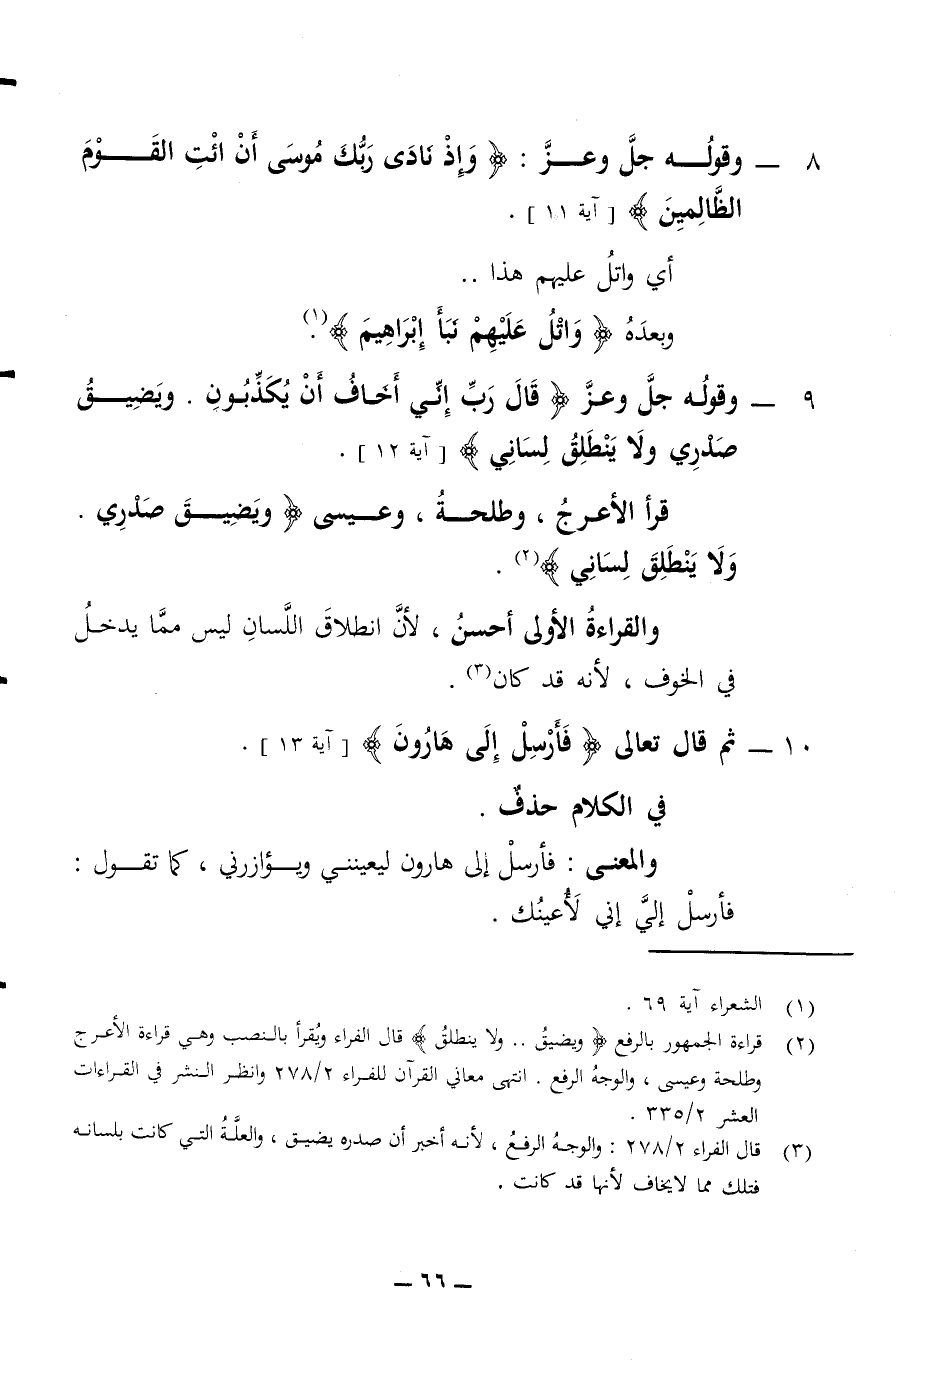 ٨ ــ وقولُـــه جلَّ وعــزَّ : ﴿ وَإِذْ نَادَى رَبُّكَ مُوسَى أَنْ ائْتِ القَــوْمَ
الظَّالِمِينَ ﴾ [ آية ١١ ] .
أي واتلُ عليهم هذا ..
وبعدَهُ ﴿ وَاتْلُ عَلَيْهِمْ نَبَأَ إِبْرَاهِيمَ ﴾(١).
٩ ــ وقولُه جلَّ وعزَّ ﴿ قَالَ رَبِّ إِنِّي أَخَافُ أَنْ يُكَذِّبُونِ . ويَضِيــقُ
صَدْرِي ولَا يَنْطَلِقُ لِسَانِي ﴾ [ آية ١٢ ] .
قرأ الأعرجُ ، وطلحــةُ ، وعــيسى ﴿ ويَضِيــقَ صَدْرِي .
وَلَا يَنْطَلِقَ لِسَانِي ﴾(٢) .
والقراءةُ الأولى أحسنُ ، لأنَّ انطلاقَ اللَّسانِ ليس ممَّا يدخــلُ
في الخوف ، لأنه قد كان(٣) .
١٠ ــ ثم قال تعالى ﴿ فَأَرْسِلْ إِلَى هَارُونَ ﴾ [ آية ١٣ ] .
في الكلام حذفٌ .
والمعنــى : فأرسلْ إلى هارون ليعيننــي ويــؤازرني ، كما تقــول :
فأرسلْ إليَّ إني لَأُعينُك .
(١) الشعراء آية ٦٩ .
(٢) قراءة الجمهور بالرفع ﴿ ويضيقُ .. ولا ينطلقُ ﴾ قال الفراء ويُقرأ بالنصب وهي قراءة الأعرج
وطلحة وعيسى ، والوجهُ الرفع . انتهى معاني القرآن للفراء ٢٧٨/٢ وانظر النشر في القراءات
العشر ٣٣٥/٢ .
(٣) قال الفراء ٢٧٨/٢ : والوجهُ الرفعُ ، لأنه أخبر أن صدره يضيق ، والعلَّةُ التي كانت بلسانه
فتلك مما لايخاف لأنها قد كانت .
ــ ٦٦ ــ